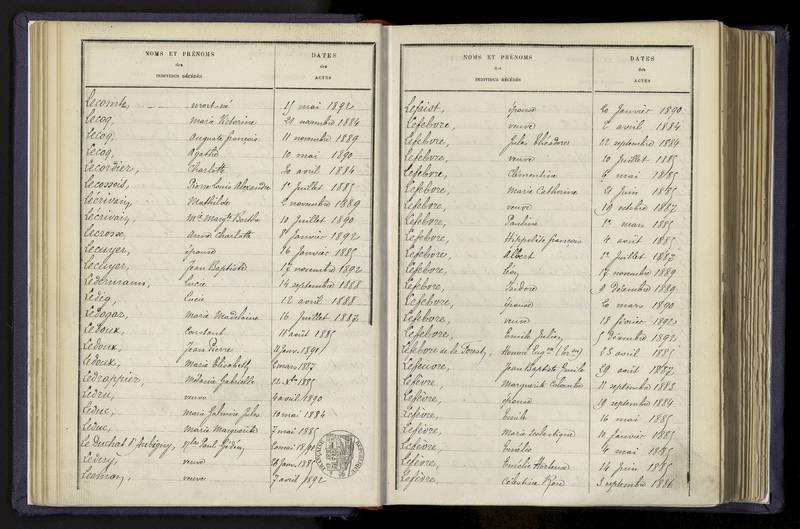 NOMS ET PRÉNOMS
des
INDIVIDUS DÉCÉDÉS
DATES
des
ACTES
Lecomte, mort-né 15 mai 1892
Lecoq, Marie Victorine 21 novembre 1884
Lecoq, Auguste françois 11 novembre 1889
Lecoq, Agathe 10 mai 1890
Lecordier, Charlotte 30 avril 1884
Lecossois, Pierre Louis Alexandre 1er Juillet 1885
Lécrivain, Mathilde 2 novembre 1889
Lécrivain, Mie Margte Berthe 10 Juillet 1890
Lecrosse, Anne Charlotte 8 Janvier 1892
Lecuyer, épouse 16 Janvier 1885
Lecuyer, Jean Baptiste 17 novembre 1892
Ledermann, Lucie 14 septembre 1888
Lucie 12 avril 1888
Marie Madeleine 16 Juillet 1887
Ledoux, Constant 11 août 1885
Ledoux, Jean Pierre 11 Janv. 1891
Ledoux, Marie Elisabeth 2 mars 1887
Ledrappier, Mélanie Gabrielle 1885
Ledru, veuve 4 avril 1890
Leduc, Marie Jules 10 mai 1884
Leduc, Marie Marguerite 7 mai 1885
Le Duchat d'Aubigny, Paul 2 mai 1891
veuve Janv. 1885
veuve 7 avril 1892
NOMS ET PRÉNOMS
des
INDIVIDUS DÉCÉDÉS
DATES
des
ACTES
épouse 20 Janvier 1890
Lefebvre, veuve 2 avril 1884
Lefebvre, Jules Théodore 22 septembre 1884
Lefebvre, veuve 10 Juillet 1885
Lefebvre, Clémentine mai 1885
Lefebvre, Marie Catherine 21 Juin 1885
Lefebvre, veuve 19 octobre 1887
Lefebvre, Pauline 1er mars 1885
Lefebvre, Hippolyte françois 4 août 1885
Lefebvre, Albert 1er Juillet 1887
Lefebvre, Léon 17 novembre 1889
Lefebvre, Isidore 9 Décembre 1889
Lefebvre, épouse 20 mars 1890
Lefebvre, veuve 18 février 1892
Lefebvre, Emile Julien 5 Décembre 1892
Lefebvre de la Forest, Honoré 23 avril 1885
Lefeuvre, Jean Baptiste Emile 29 août 1887
Lefèvre, Marguerite Colombe 11 septembre 1883
Lefèvre, épouse 19 septembre 1884
Lefèvre, Emile 16 mai 1885
Lefèvre, Marie Scolastique 11 Janvier 1885
Lefèvre, Emélie 4 mai 1885
Lefèvre, Emélie Hortense 14 Juin 1885
Lefèvre, Célestine Rose 3 septembre 1886